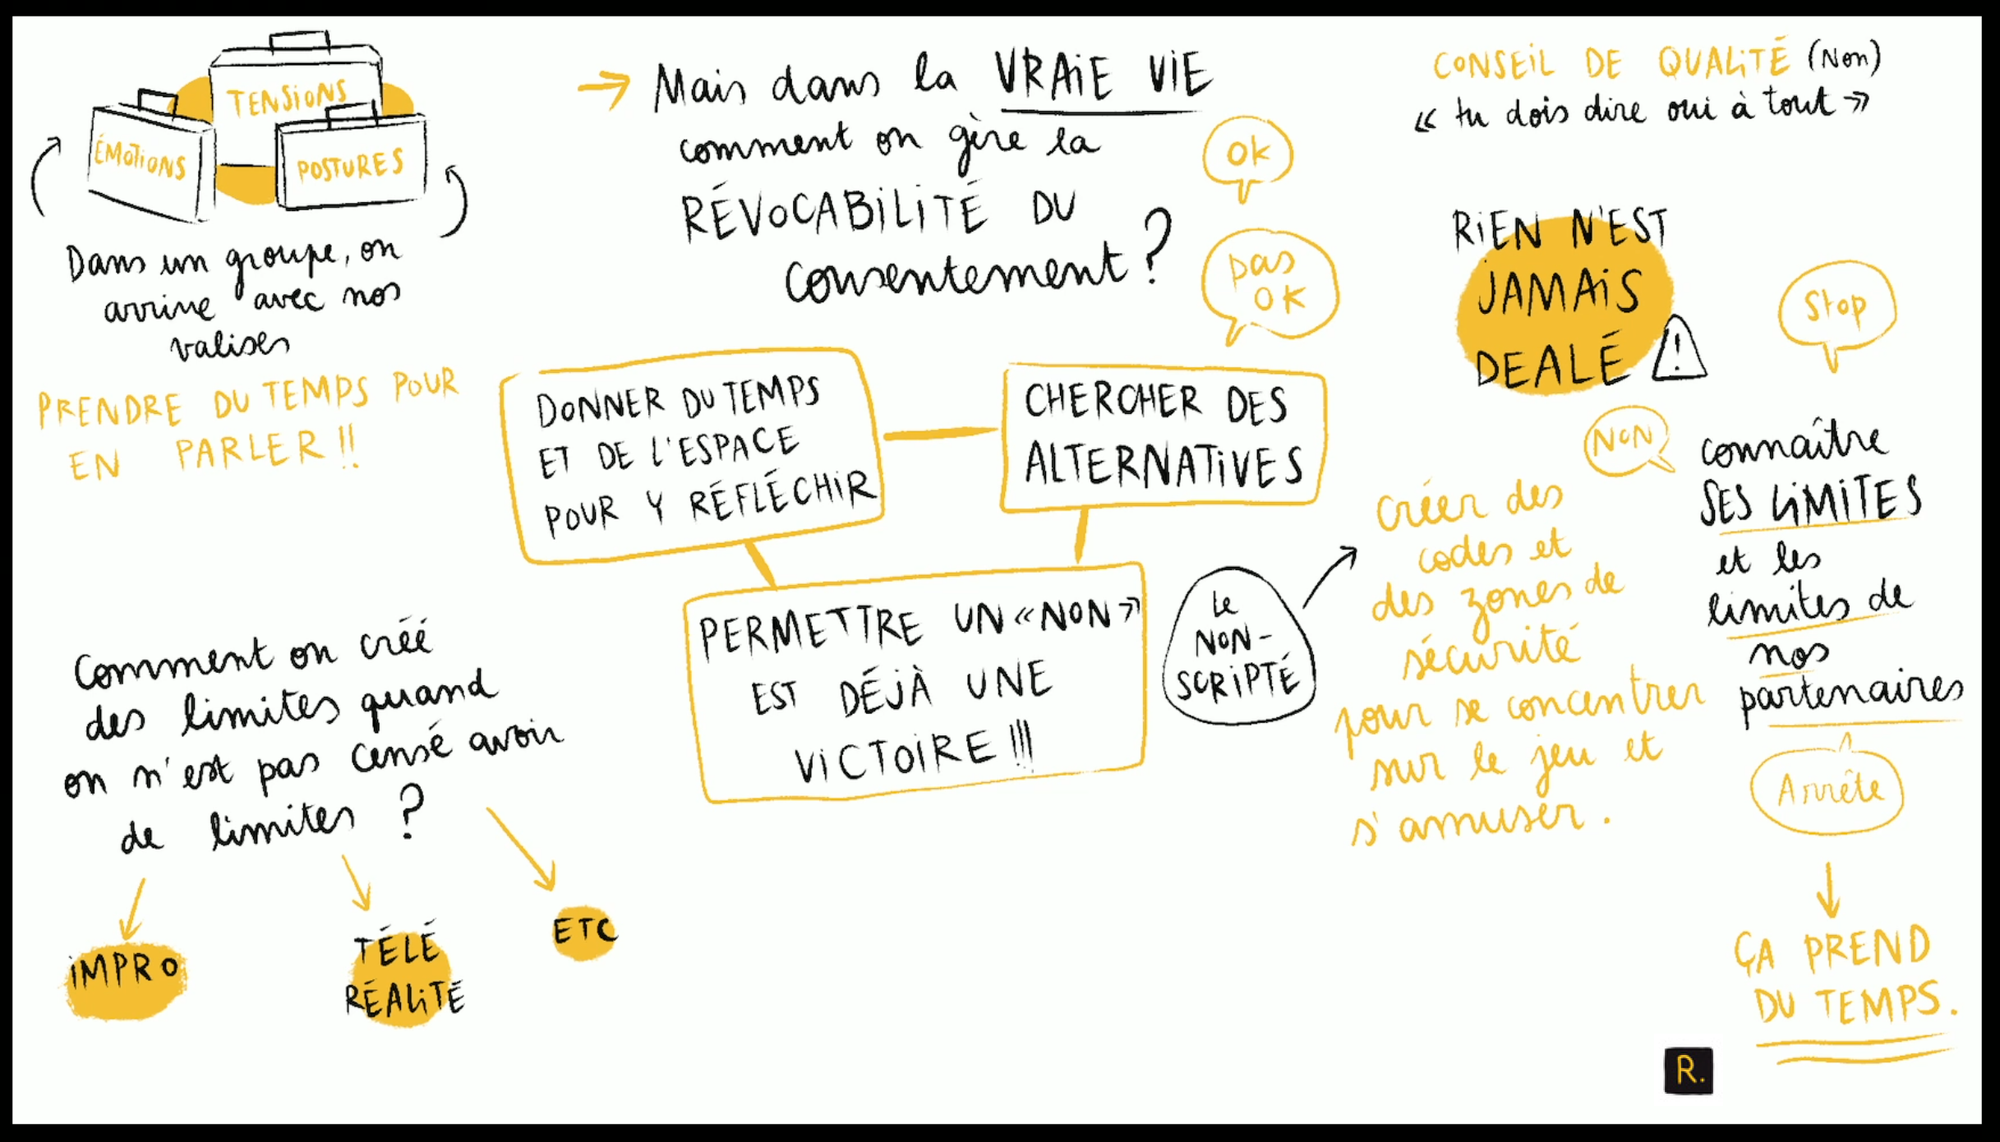 TENSIONS
ÉMOTIONS
POSTURES
Dans un groupe, on
arrive avec nos
valises
PRENDRE DU TEMPS POUR
EN PARLER !!
→ Mais dans la VRAIE VIE
comment on gère la
RÉVOCABILITÉ DU
consentement ?
OK
pas
OK
CONSEIL DE QUALITÉ (Non)
« tu dois dire oui à tout »
RIEN N'EST
JAMAIS
DEALÉ
!
Stop
NON
DONNER DU TEMPS
ET DE L'ESPACE
POUR Y RÉFLÉCHIR
CHERCHER DES
ALTERNATIVES
PERMETTRE UN « NON »
EST DÉJÀ UNE
VICTOIRE !!!
Le
NON-
SCRIPTÉ
Créer des
codes et
des zones de
sécurité
pour se concentrer
sur le jeu et
s'amuser.
connaître
SES LIMITES
et les
limites de
nos
partenaires
Arrête
ÇA PREND
DU TEMPS.
Comment on créé
des limites quand
on n'est pas censé avoir
de limites ?
IMPRO
TÉLÉ
RÉALITÉ
ETC
R.